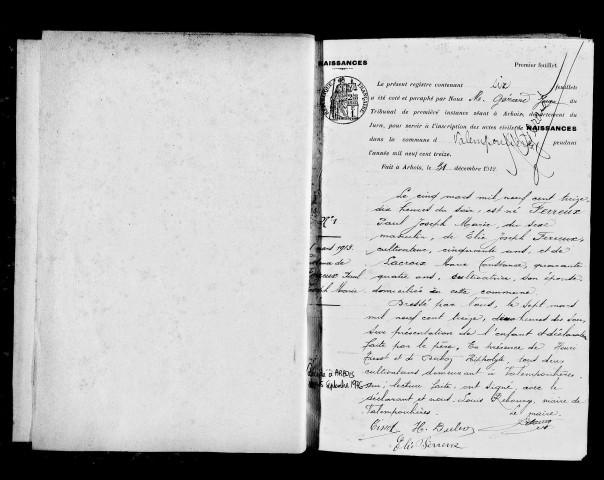 NAISSANCES
Premier feuillet.
RÉPUBLIQUE FRANÇAISE
Le présent registre contenant six feuillets
a été coté et paraphé par Nous Me Juge du
Tribunal de première instance séant à Arbois, département du
Jura, pour servir à l'inscription des actes civils de NAISSANCES
dans la commune d pendant
l'année mil neuf cent treize.
Fait à Arbois, le décembre 1912.
Le cinq mars mil neuf cent treize
dix heures du soir, est né Ferreux
Paul Joseph Marie, du sexe
masculin, de Elie Joseph Ferreux,
cultivateur, cinquante ans, et de
Lacroix Marie Constance, quarante
quatre ans, cultivatrice, son épouse
domiciliés en cette commune.
Dressé par Nous, le sept mars
mil neuf cent treize, heures du soir,
sur présentation de l'enfant et déclaration
faite par le père. En présence de Henri
et de Hippolyte, tous deux
cultivateurs demeurant à Valempoulières.
qui, lecture faite, ont signé avec le
déclarant et nous Louis maire de
Valempoulières. Le maire
H.
Elie Ferreux
N° 1
mars 1913.
de
Paul
Joseph Marie
à ARBOIS
Septembre 1976